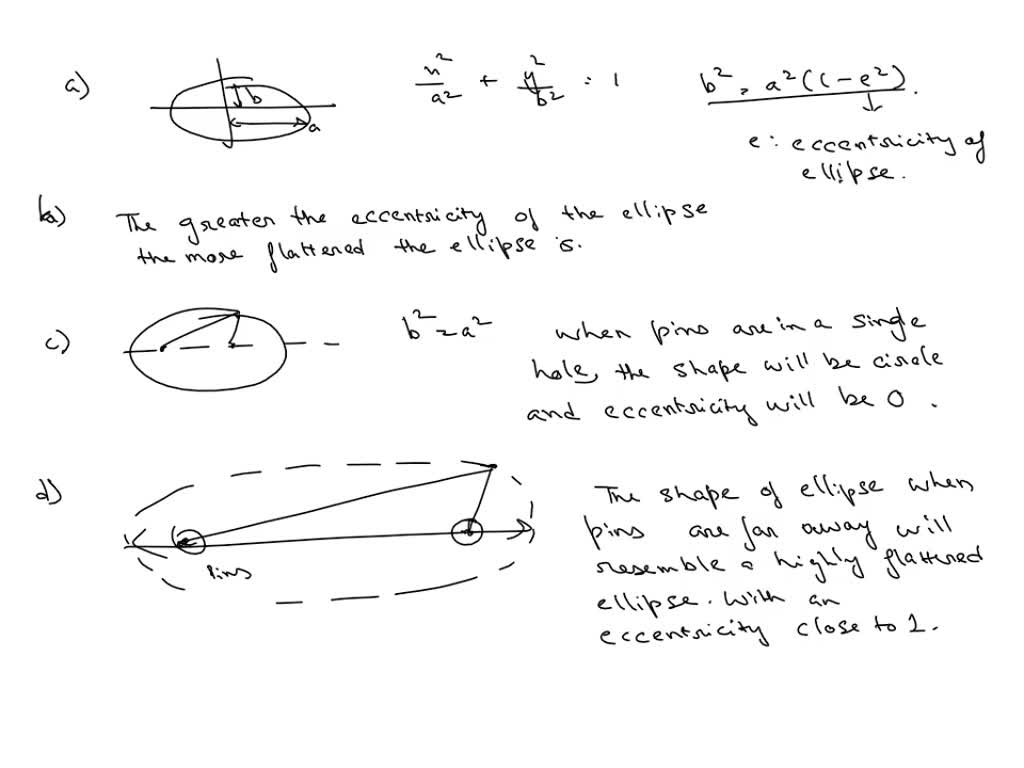 a) b a x²/a² + y²/b² = 1 b² = a²(1-e²).
e: eccentricity of
ellipse.
b) The greater the eccentricity of the ellipse
the more flattened the ellipse is.
c) b² = a² when pins are in a single
hole, the shape will be circle
and eccentricity will be 0.
d) The shape of ellipse when
pins are far away will
resemble a highly flattered
ellipse. with an
eccentricity close to 1.
Pins